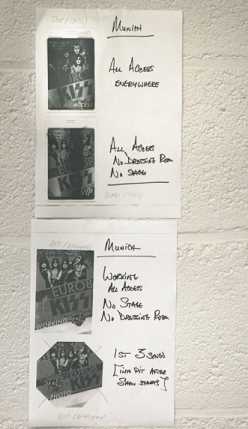 MUNICH
ALL ACCESS
EVERYWHERE
KISS
ALL ACCESS
NO DRESSING ROOM
NO STAGE
KISS
MUNICH
WORKING
ALL ACCESS
NO STAGE
NO DRESSING ROOM
EUROPE
KISS
1ST 3 SONGS
[IN PIT AFTER
SHOW STARTS]
KISS